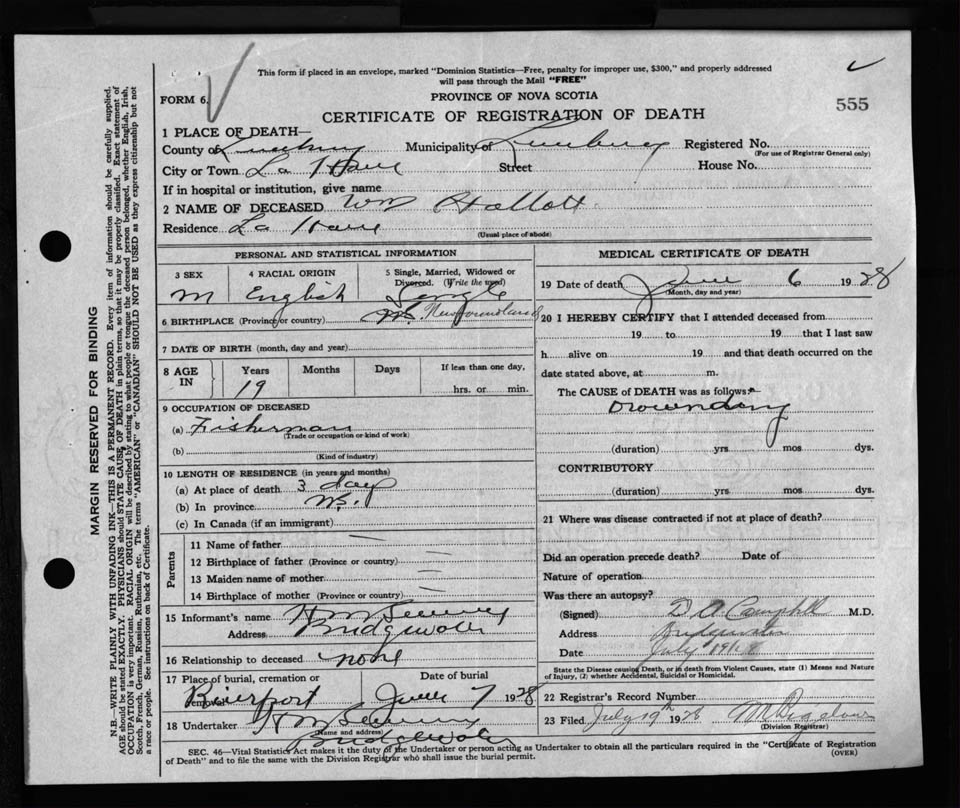 This form if placed in an envelope, marked "Dominion Statistics—Free, penalty for improper use, $300," and properly addressed
will pass through the Mail "FREE"
FORM 6.
PROVINCE OF NOVA SCOTIA
555
CERTIFICATE OF REGISTRATION OF DEATH
1 PLACE OF DEATH—
County of Lunenburg Municipality of Lunenburg Registered No.
(For use of Registrar General only)
City or Town La Have Street House No.
If in hospital or institution, give name
2 NAME OF DECEASED Wm Hallott
Residence La Have
(Usual place of abode)
PERSONAL AND STATISTICAL INFORMATION
3 SEX 4 RACIAL ORIGIN 5 Single, Married, Widowed or
Divorced. (Write the word)
M English Single
6 BIRTHPLACE (Province or country) Newfoundland
7 DATE OF BIRTH (month, day and year)
8 AGE IN Years Months Days If less than one day,
19 hrs. or min.
9 OCCUPATION OF DECEASED
(a) Fisherman
(Trade or occupation or kind of work)
(b)
(Kind of industry)
10 LENGTH OF RESIDENCE (in years and months)
(a) At place of death 3 day
(b) In province
(c) In Canada (if an immigrant)
Parents
11 Name of father —
12 Birthplace of father (Province or country) —
13 Maiden name of mother —
14 Birthplace of mother (Province or country) —
15 Informant's name H M
Address Bridgewater
16 Relationship to deceased none
17 Place of burial, cremation or removal Date of burial
Riverport June 7 1928
18 Undertaker H M
(Name and address)
Bridgewater
MEDICAL CERTIFICATE OF DEATH
19 Date of death June 6 1928
(Month, day and year)
20 I HEREBY CERTIFY that I attended deceased from
19 to 19 that I last saw
h alive on 19 and that death occurred on the
date stated above, at m.
The CAUSE of DEATH was as follows:
Drownding
(duration) yrs mos dys.
CONTRIBUTORY
(duration) yrs mos dys.
21 Where was disease contracted if not at place of death?
Did an operation precede death? Date of
Nature of operation
Was there an autopsy?
(Signed) D A Campbell M.D.
Address Bridgewater
Date July 19/28
State the Disease causing Death, or in death from Violent Causes, state (1) Means and Nature
of Injury, (2) whether Accidental, Suicidal or Homicidal.
22 Registrar's Record Number
23 Filed July 19th 1928
(Division Registrar)
SEC. 46—Vital Statistics Act makes it the duty of the Undertaker or person acting as Undertaker to obtain all the particulars required in the "Certificate of Registration
of Death" and to file the same with the Division Registrar who shall issue the burial permit.
(OVER)
MARGIN RESERVED FOR BINDING
N.B.—WRITE PLAINLY WITH UNFADING INK—THIS IS A PERMANENT RECORD. Every item of information should be carefully supplied.
AGE should be stated EXACTLY. PHYSICIANS should STATE CAUSE OF DEATH in plain terms, so that it may be properly classified. Exact statement of
OCCUPATION is very important. RACIAL ORIGIN will be described by stating to what people or tongue the deceased person belonged, whether English, Irish,
Scotch, French, German, Russian, Ruthenian, etc. The terms "AMERICAN" or "CANADIAN" SHOULD NOT BE USED as they express citizenship but not
a race or people. See instructions on back of Certificate.